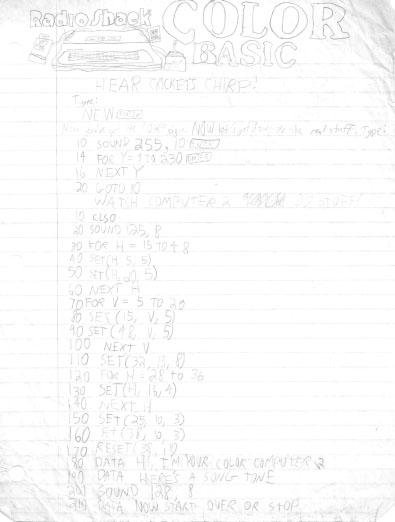 Radio Shack COLOR
BASIC
HEAR CRICKETS CHIRP!
Type:
NEW ENTER
NOW real stuff. Type:
10 SOUND 255, 10 ENTER
14 FOR Y= 1 TO 230 ENTER
16 NEXT Y
20 GOTO 10
WATCH COMPUTER 2 DO STUFF!
10 CLS0
20 SOUND 125, 8
30 FOR H = 15 TO 48
40 SET(H, 5, 5)
50 SET(H, 20, 5)
60 NEXT H
70 FOR V = 5 TO 20
80 SET (15, V, 5)
90 SET (48, V, 5)
100 NEXT V
110 SET(32, 13, 8)
120 FOR H = 28 to 36
130 SET(H, 16, 4)
140 NEXT H
150 SET(25, 10, 3)
160 SET(38, 10, 3)
170 RESET(38, 10)
180 DATA HI, I'M YOUR COLOR COMPUTER 2
190 DATA HERE'S A SONG TONE
200 SOUND 128, 8
210 DATA NOW START OVER OR STOP.